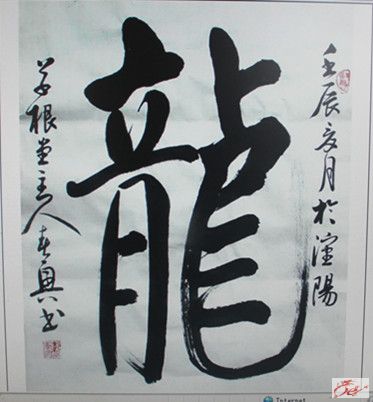 壬辰夏月於陽
龍
草根堂主人春興書
Internet